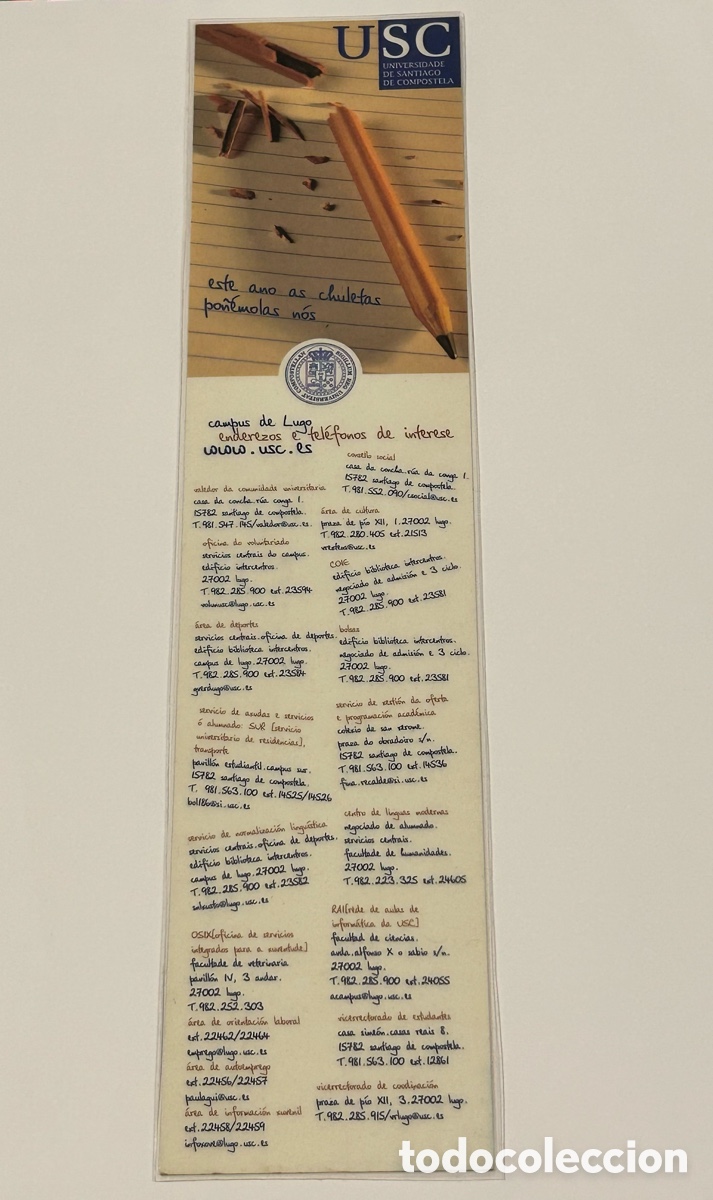 USC
UNIVERSIDADE
DE SANTIAGO
DE COMPOSTELA
este ano as chuletas
poñémolas nós
SIGILLUM REG UNIVERSITAT COMPOSTELLAN
campus de Lugo
enderezos e teléfonos de interese
www.usc.es
valedor da comunidade universitaria
casa da concha.rúa conga 1.
15782 santiago de compostela.
T.981.547.145/valedor@usc.es.
oficina do voluntariado
servicios centrais do campus.
edificio intercentros.
27002 lugo.
T.982.285.900 ext.23594
volunusc@lugo.usc.es
área de deportes
servicios centrais.oficina de deportes.
edificio biblioteca intercentros.
campus de lugo.27002 lugo.
T.982.285.900 ext.23584
gverdugo@usc.es
servicio de axudas e servicios
ó alumnado: SUR [servicio
universitario de residencias],
transporte
pavillón estudiantil.campus sur.
15782 santiago de compostela.
T. 981.563.100 ext.14525/14526
bol186@si.usc.es
servicio de normalización lingüística
servicios centrais.oficina de deportes.
edificio biblioteca intercentros.
campus de lugo.27002 lugo.
T.982.285.900 ext.23582
@lugo.usc.es
OSIX[oficina de servicios
integrados para a xuventude]
facultade de veterinaria
pavillón IV, 3 andar.
27002 lugo.
T.982.252.303
área de orientación laboral
ext.22462/22464
emprego@lugo.usc.es
área de autoemprego
ext.22456/22457
paulagui@usc.es
área de información xuvenil
ext.22458/22459
infoxove@lugo.usc.es
consello social
casa da concha.rúa da conga 1.
15782 santiago de compostela.
T.981.552.090/csocial@usc.es
área de cultura
praza de pío XII, 1.27002 lugo.
T.982.280.405 ext.21513
vrextens@usc.es
COIE
edificio biblioteca intercentros.
negociado de admisión e 3 ciclo.
27002 lugo.
T.982.285.900 ext.23581
bolsas
edificio biblioteca intercentros.
negociado de admisión e 3 ciclo.
27002 lugo.
T.982.285.900 ext.23581
servicio de xestión da oferta
e programación académica
colexio de san xerome.
praza do obradoiro s/n.
15782 santiago de compostela.
T.981.563.100 ext.14536
fina.recalde@si.usc.es
centro de linguas modernas
negociado de alumnado.
servicios centrais.
facultade de humanidades.
27002 lugo.
T.982.223.325 ext.24605
RAI[rede de aulas de
informática da USC]
facultad de ciencias.
avda.alfonso X o sabio s/n.
27002 lugo.
T.982.285.900 ext.24055
acampus@lugo.usc.es
vicerrectorado de estudantes
casa simeón.casas reais 8.
15782 santiago de compostela.
T.981.563.100 ext.12861
vicerrectorado de coodinación
praza de pío XII, 3.27002 lugo.
T.982.285.915/vrlugo@usc.es
todocoleccion